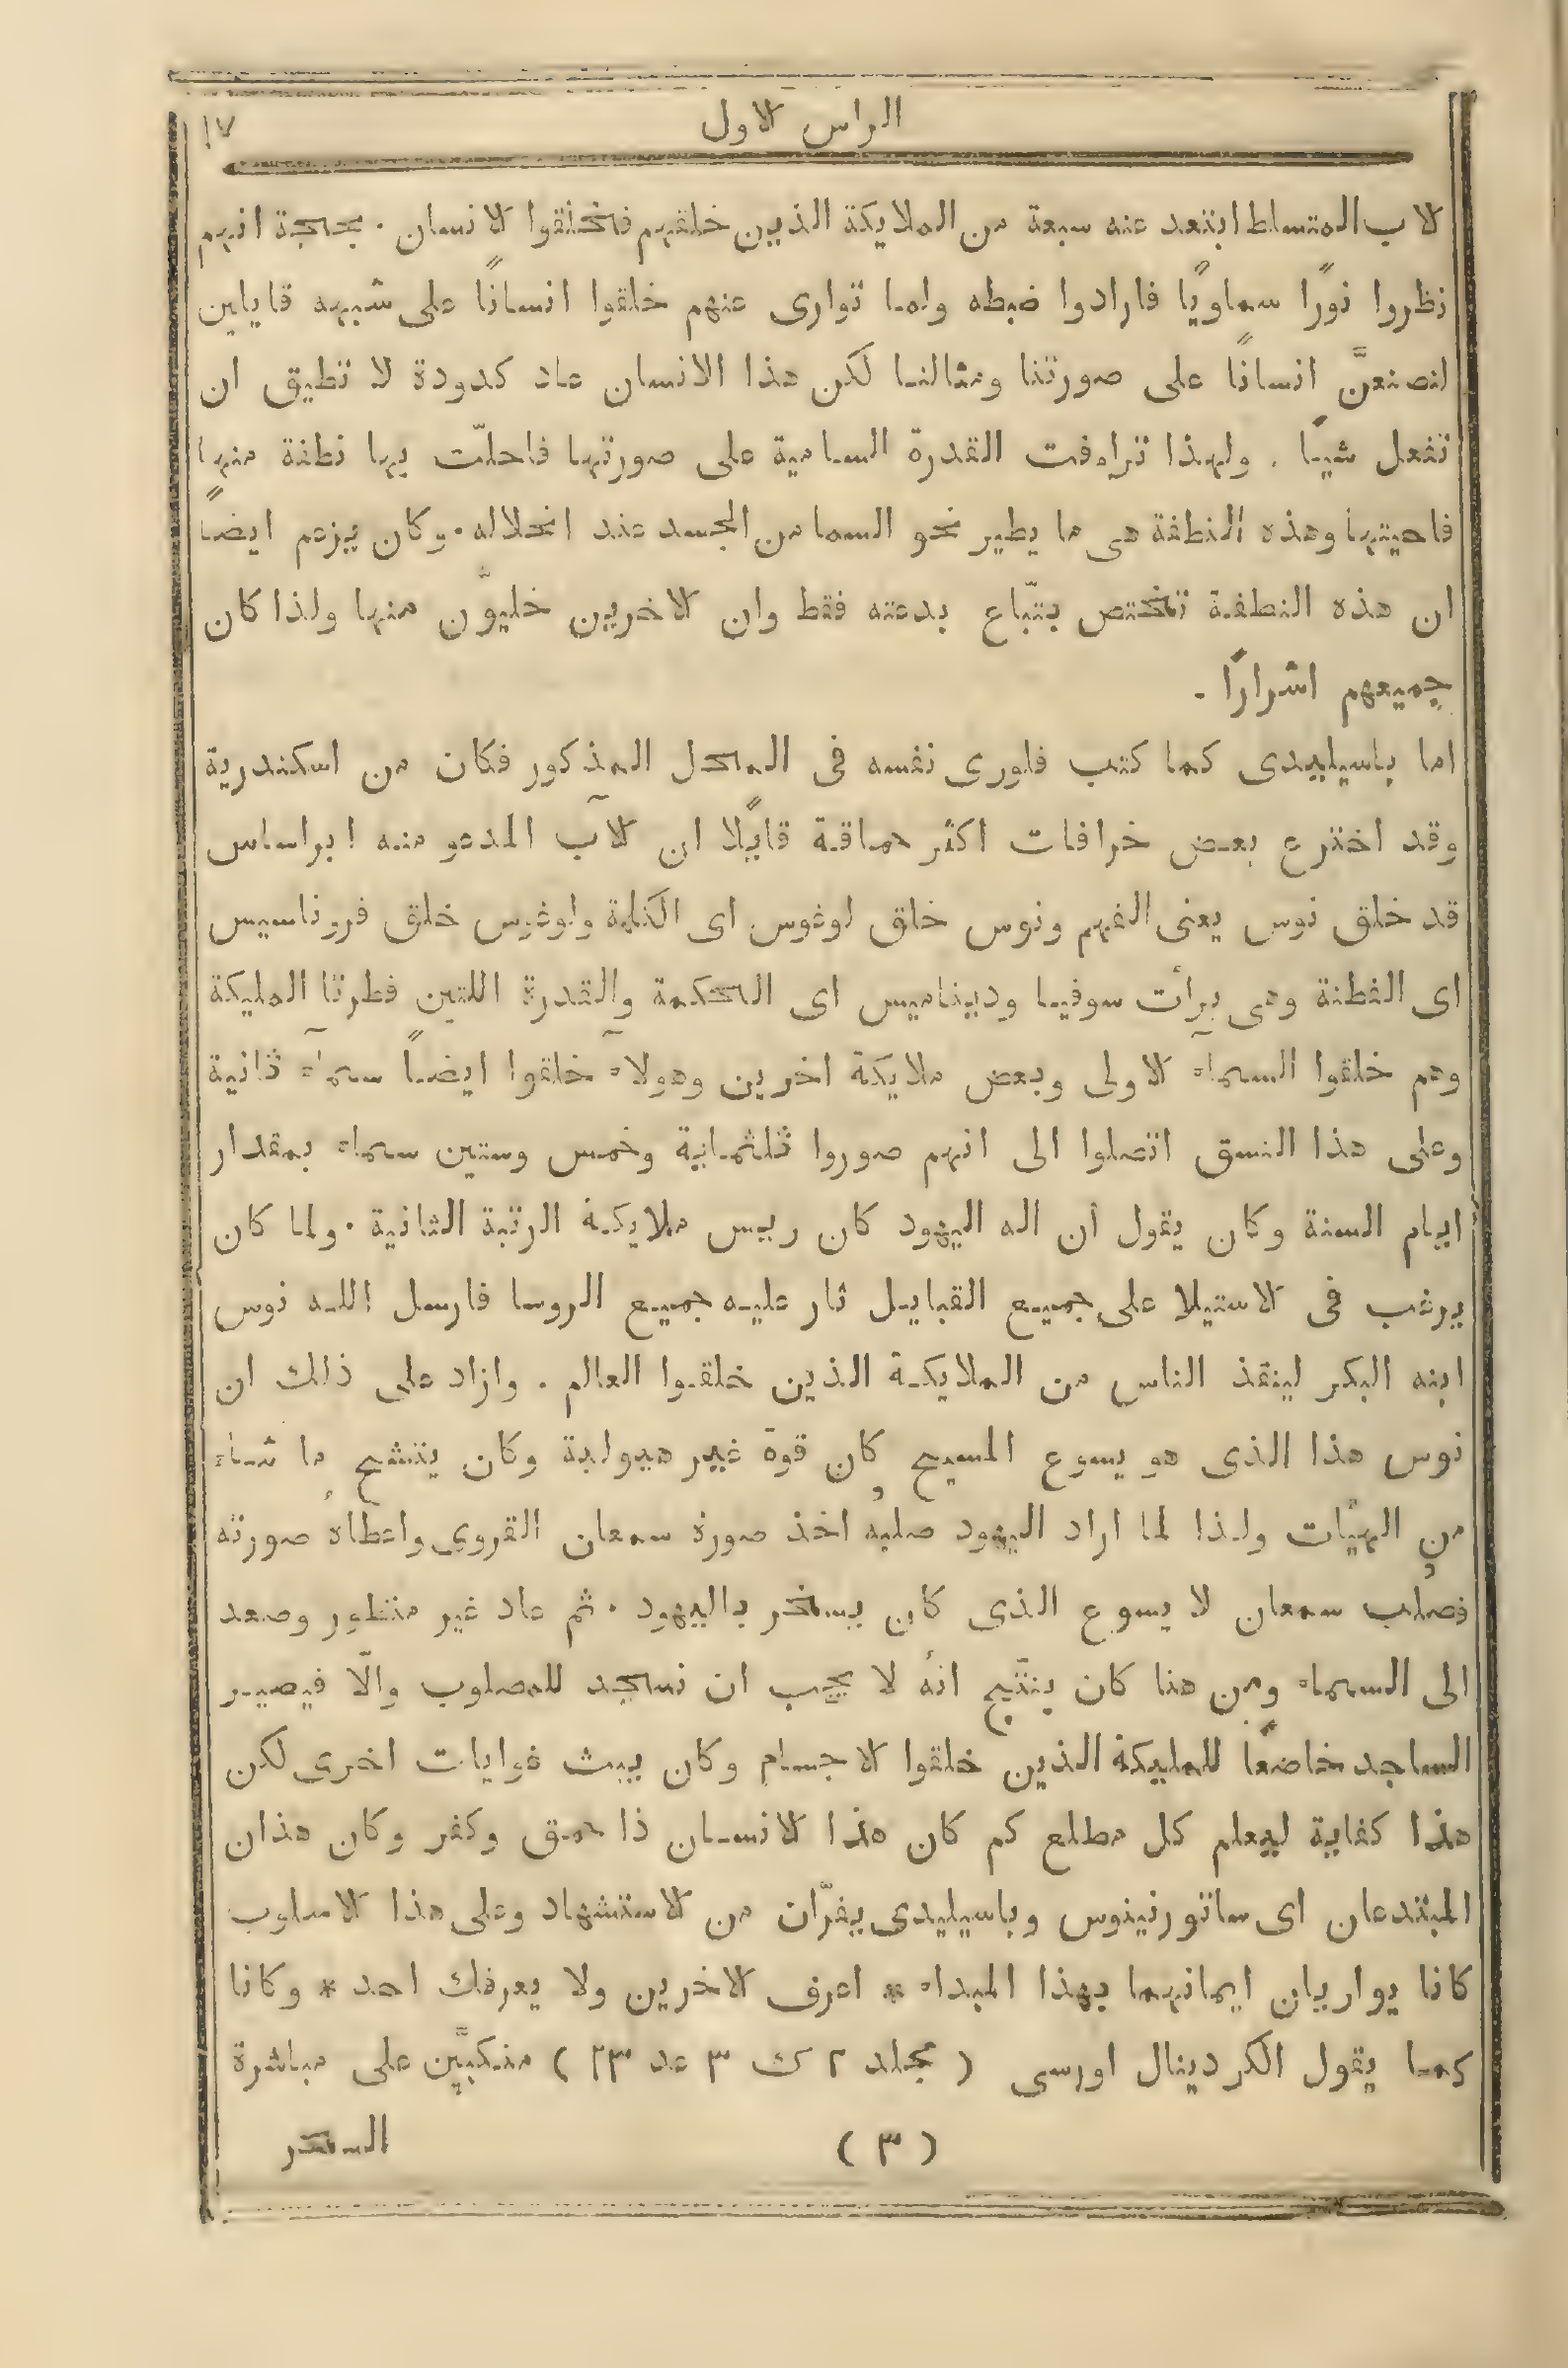 الراس الاول ١٧
الاب المتسلط ابتعد عنه سبعة من الملايكة الذين خلقهم فخلقوا الانسان ٠ بحجة انهم
نظروا نورًا سماويًا فارادوا ضبطه ولما توارى عنهم خلقوا انسانًا على شبهه قايلين
لنصنعنَّ انسانًا على صورتنا ومثالنا لكن هذا الانسان عاد كدودة لا تطيق ان
تفعل شيًا . ولهذا تراوفت القدرة السامية على صورتها فاحلّت بها نطفة منها
فاحيتها وهذه النطفة هى ما يطير نحو السما من الجسد عند انحلاله ٠ وكان يزعم ايضًا
ان هذه النطفة تختص بتبّاع بدعته فقط وان الاخريين خليوّن منها ولذا كان
جميعهم اشرارًا .
اما باسيليدى كما كتب فلورى نفسه فى المحل المذكور فكان من اسكندرية
وقد اخترع بعض خرافات اكثر حماقة قايلًا ان الآب المدعو منه ابراساس
قد خلق نوس يعنى الفهم ونوس خلق لوغوس اى الكلمة ولوغوس خلق فروناسيس
اى الفطنة وهى برأت سوفيا وديناميس اى الحكمة والقدرة اللتين فطرتا المليكة
وهم خلقوا السمآء الاولى وبعض ملايكة اخرين وهولآء خلقوا ايضًا سمآء ثانية
وعلى هذا النسق اتصلوا الى انهم صوروا ثلثماية وخمس وستين سماء بمقدار
ايام السنة وكان يقول ان اله اليهود كان رييس ملايكة الرتبة الثانية ٠ ولما كان
يرغب فى الاستيلا على جميع القبايل ثار عليه جميع الروسا فارسل الله نوس
ابنه البكر لينقذ الناس من الملايكة الذين خلقوا العالم . وازاد على ذلك ان
نوس هذا الذى هو يسوع المسيح كان قوة غير هيولية وكان يتشح ما شاء
من الهيّات ولذا لما اراد اليهود صلبهُ اخذ صورة سمعان القروى واعطاهُ صورته
فصُلب سمعان لا يسوع الذى كان يسخر باليهود ٠ ثم عاد غير منظور وصعد
الى السماء ومن هنا كان ينتّج انهُ لا يجب ان نسجد للمصلوب والّا فيصير
الساجد خاضعًا للمليكة الذين خلقوا الاجسام وكان يبث غوايات اخرى لكن
هذا كفاية ليعلم كل مطلع كم كان هذا الانسان ذا حمق وكفر وكان هذان
المبتدعان اى ساتورنينوس وباسيليدى يفرّان من الاستشهاد وعلى هذا الاسلوب
كانا يواريان ايمانهما بهذا المبداء * اعرف الاخرين ولا يعرفك احد * وكانا
كما يقول الكردينال اورسى ( مجلد ٢ ك ٣ عد ٢٣ ) منكبّين على مباشرة
( ٣ ) السحر